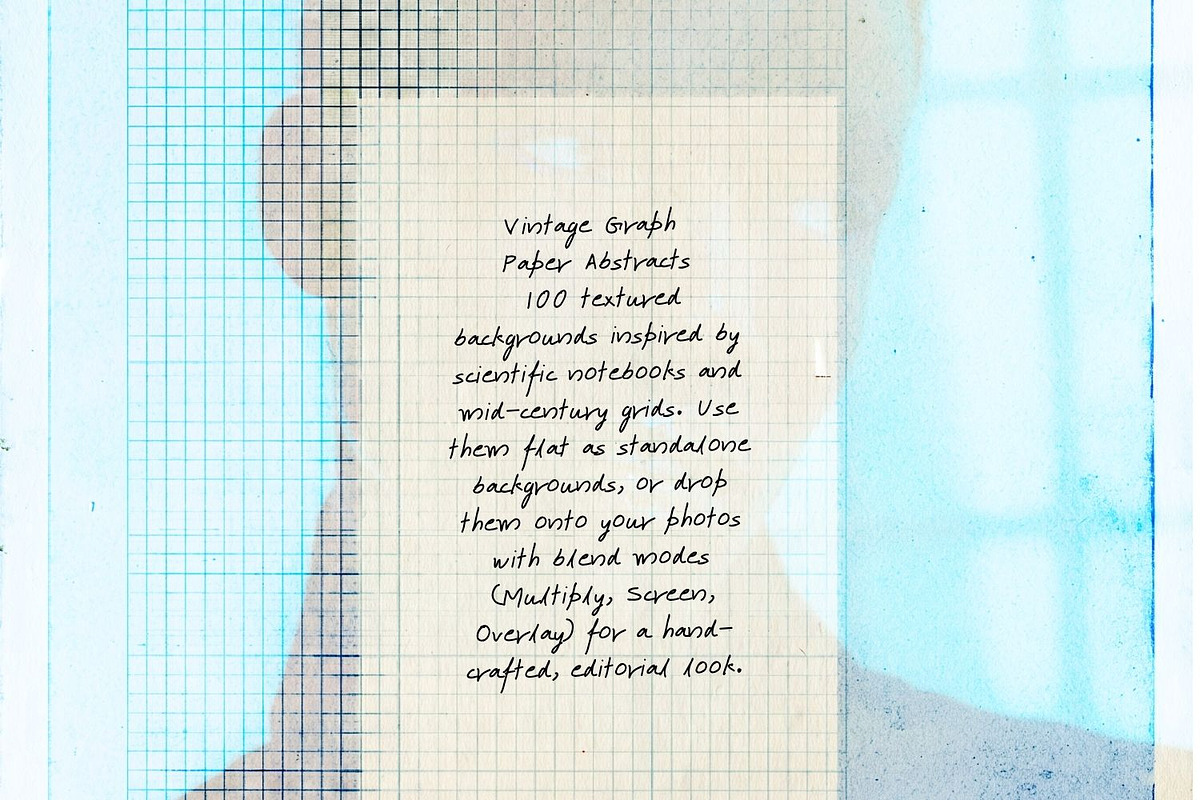 Vintage Graph
Paper Abstracts
100 textured
backgrounds inspired by
scientific notebooks and
mid-century grids. Use
them flat as standalone
backgrounds, or drop
them onto your photos
with blend modes
(Multiply, Screen,
Overlay) for a hand-
crafted, editorial look.